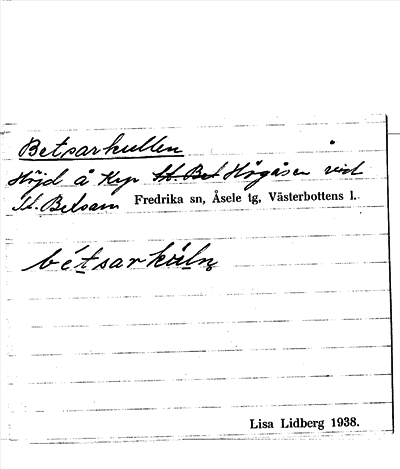 Betsarkullen
Höjd å Krp St. Bet Högåsen vid
St. Betsarn Fredrika sn, Åsele tg, Västerbottens l.
bétsarkùln̥
Lisa Lidberg 1938.